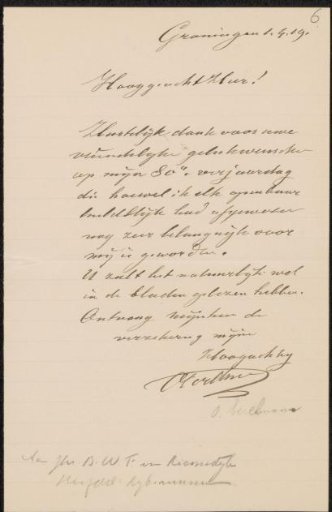 6
Groningen 1.4.19.
Hooggeacht Heer!
Hartelijk dank voor uwe
vriendelijke gelukwenschen
op mijn 80n. verjaardag
die hoewel ik elk openbaar
huldeblijk had afgewezen
nog zeer belangrijk voor
mij is geworden.
U zult het natuurlijk wel
in de bladen gelezen hebben.
Ontvang mijnheer de
verzekering mijner
Hoogachting
Aan Jhr B. W. F. van Riemsdijk